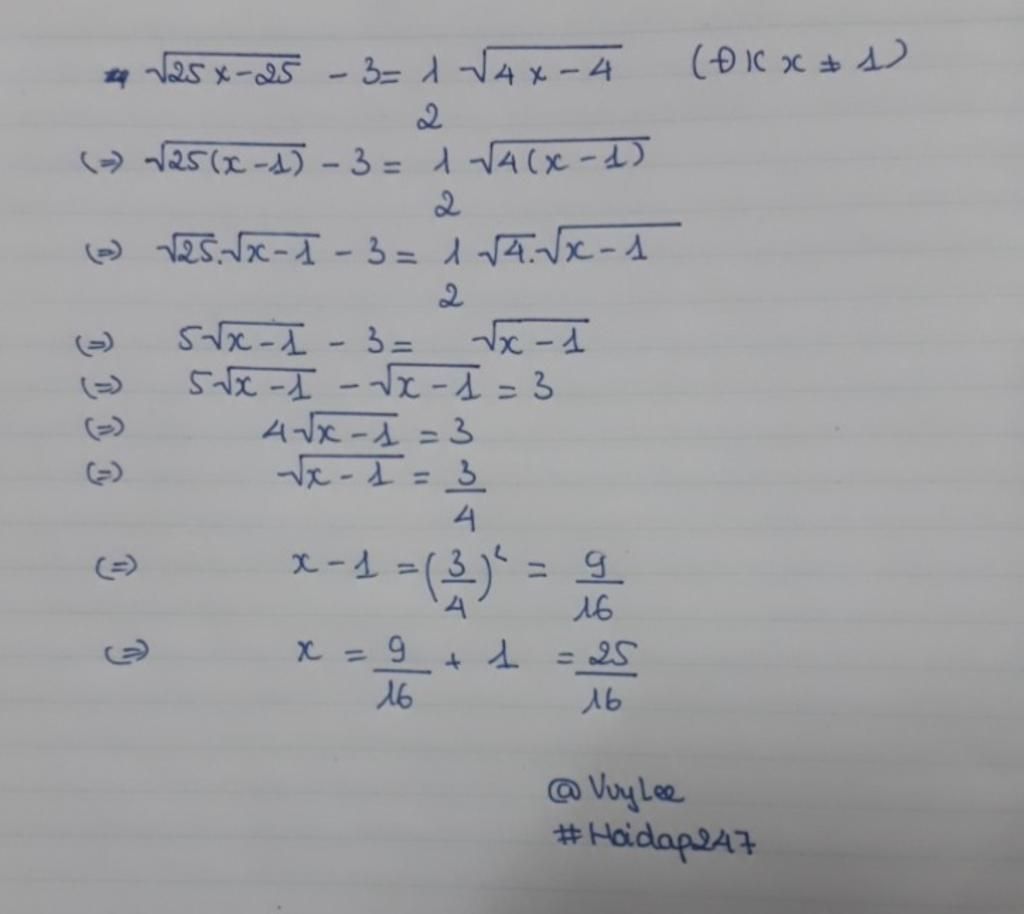 √25x-25 - 3 = 1/2 √4x-4 (ĐK x ≠ 1)
(=) √25(x-1) - 3 = 1/2 √4(x-1)
(=) √25.√x-1 - 3 = 1/2 √4.√x-1
(=) 5√x-1 - 3 = √x-1
(=) 5√x-1 - √x-1 = 3
(=) 4√x-1 = 3
(=) √x-1 = 3/4
(=) x-1 = (3/4)² = 9/16
(=) x = 9/16 + 1 = 25/16
@VuyLee
#Hoidap247